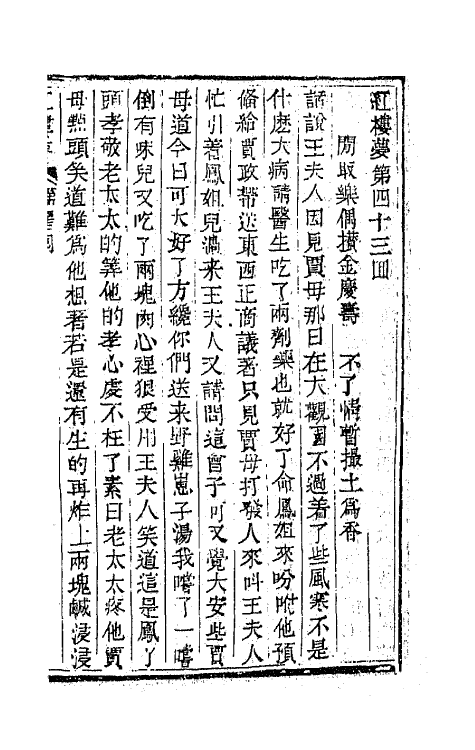 紅樓夢第四十三囘
閒取樂偶攅金慶壽　不了情暫撮土爲香
話說王夫人因見賈母那日在大觀園不過着了些風寒不是
什麽大病請醫生吃了兩劑藥也就好了命鳳姐來吩咐他預
俻給賈政帶送東西正商議著只見賈母打發人來叫王夫人
忙引着鳳姐兒過来王夫人又請問這會子可又覺大安些賈
母道今日可大好了方纔你們送来野雞崽子湯我嚐了一嚐
倒有味兒又吃了兩塊肉心裡狠受用王夫人笑道這是鳳丫
頭孝敬老太太的筭他的孝心虔不枉了素日老太太疼他賈
母㸃頭笑道難爲他想著若是還有生的再炸上兩塊鹹浸浸